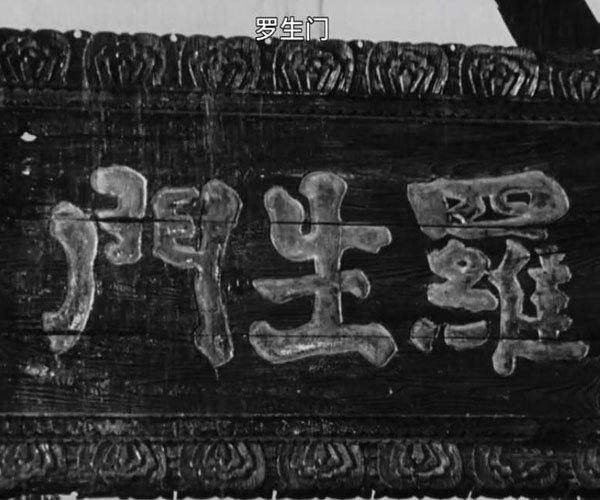 罗生门
羅生門